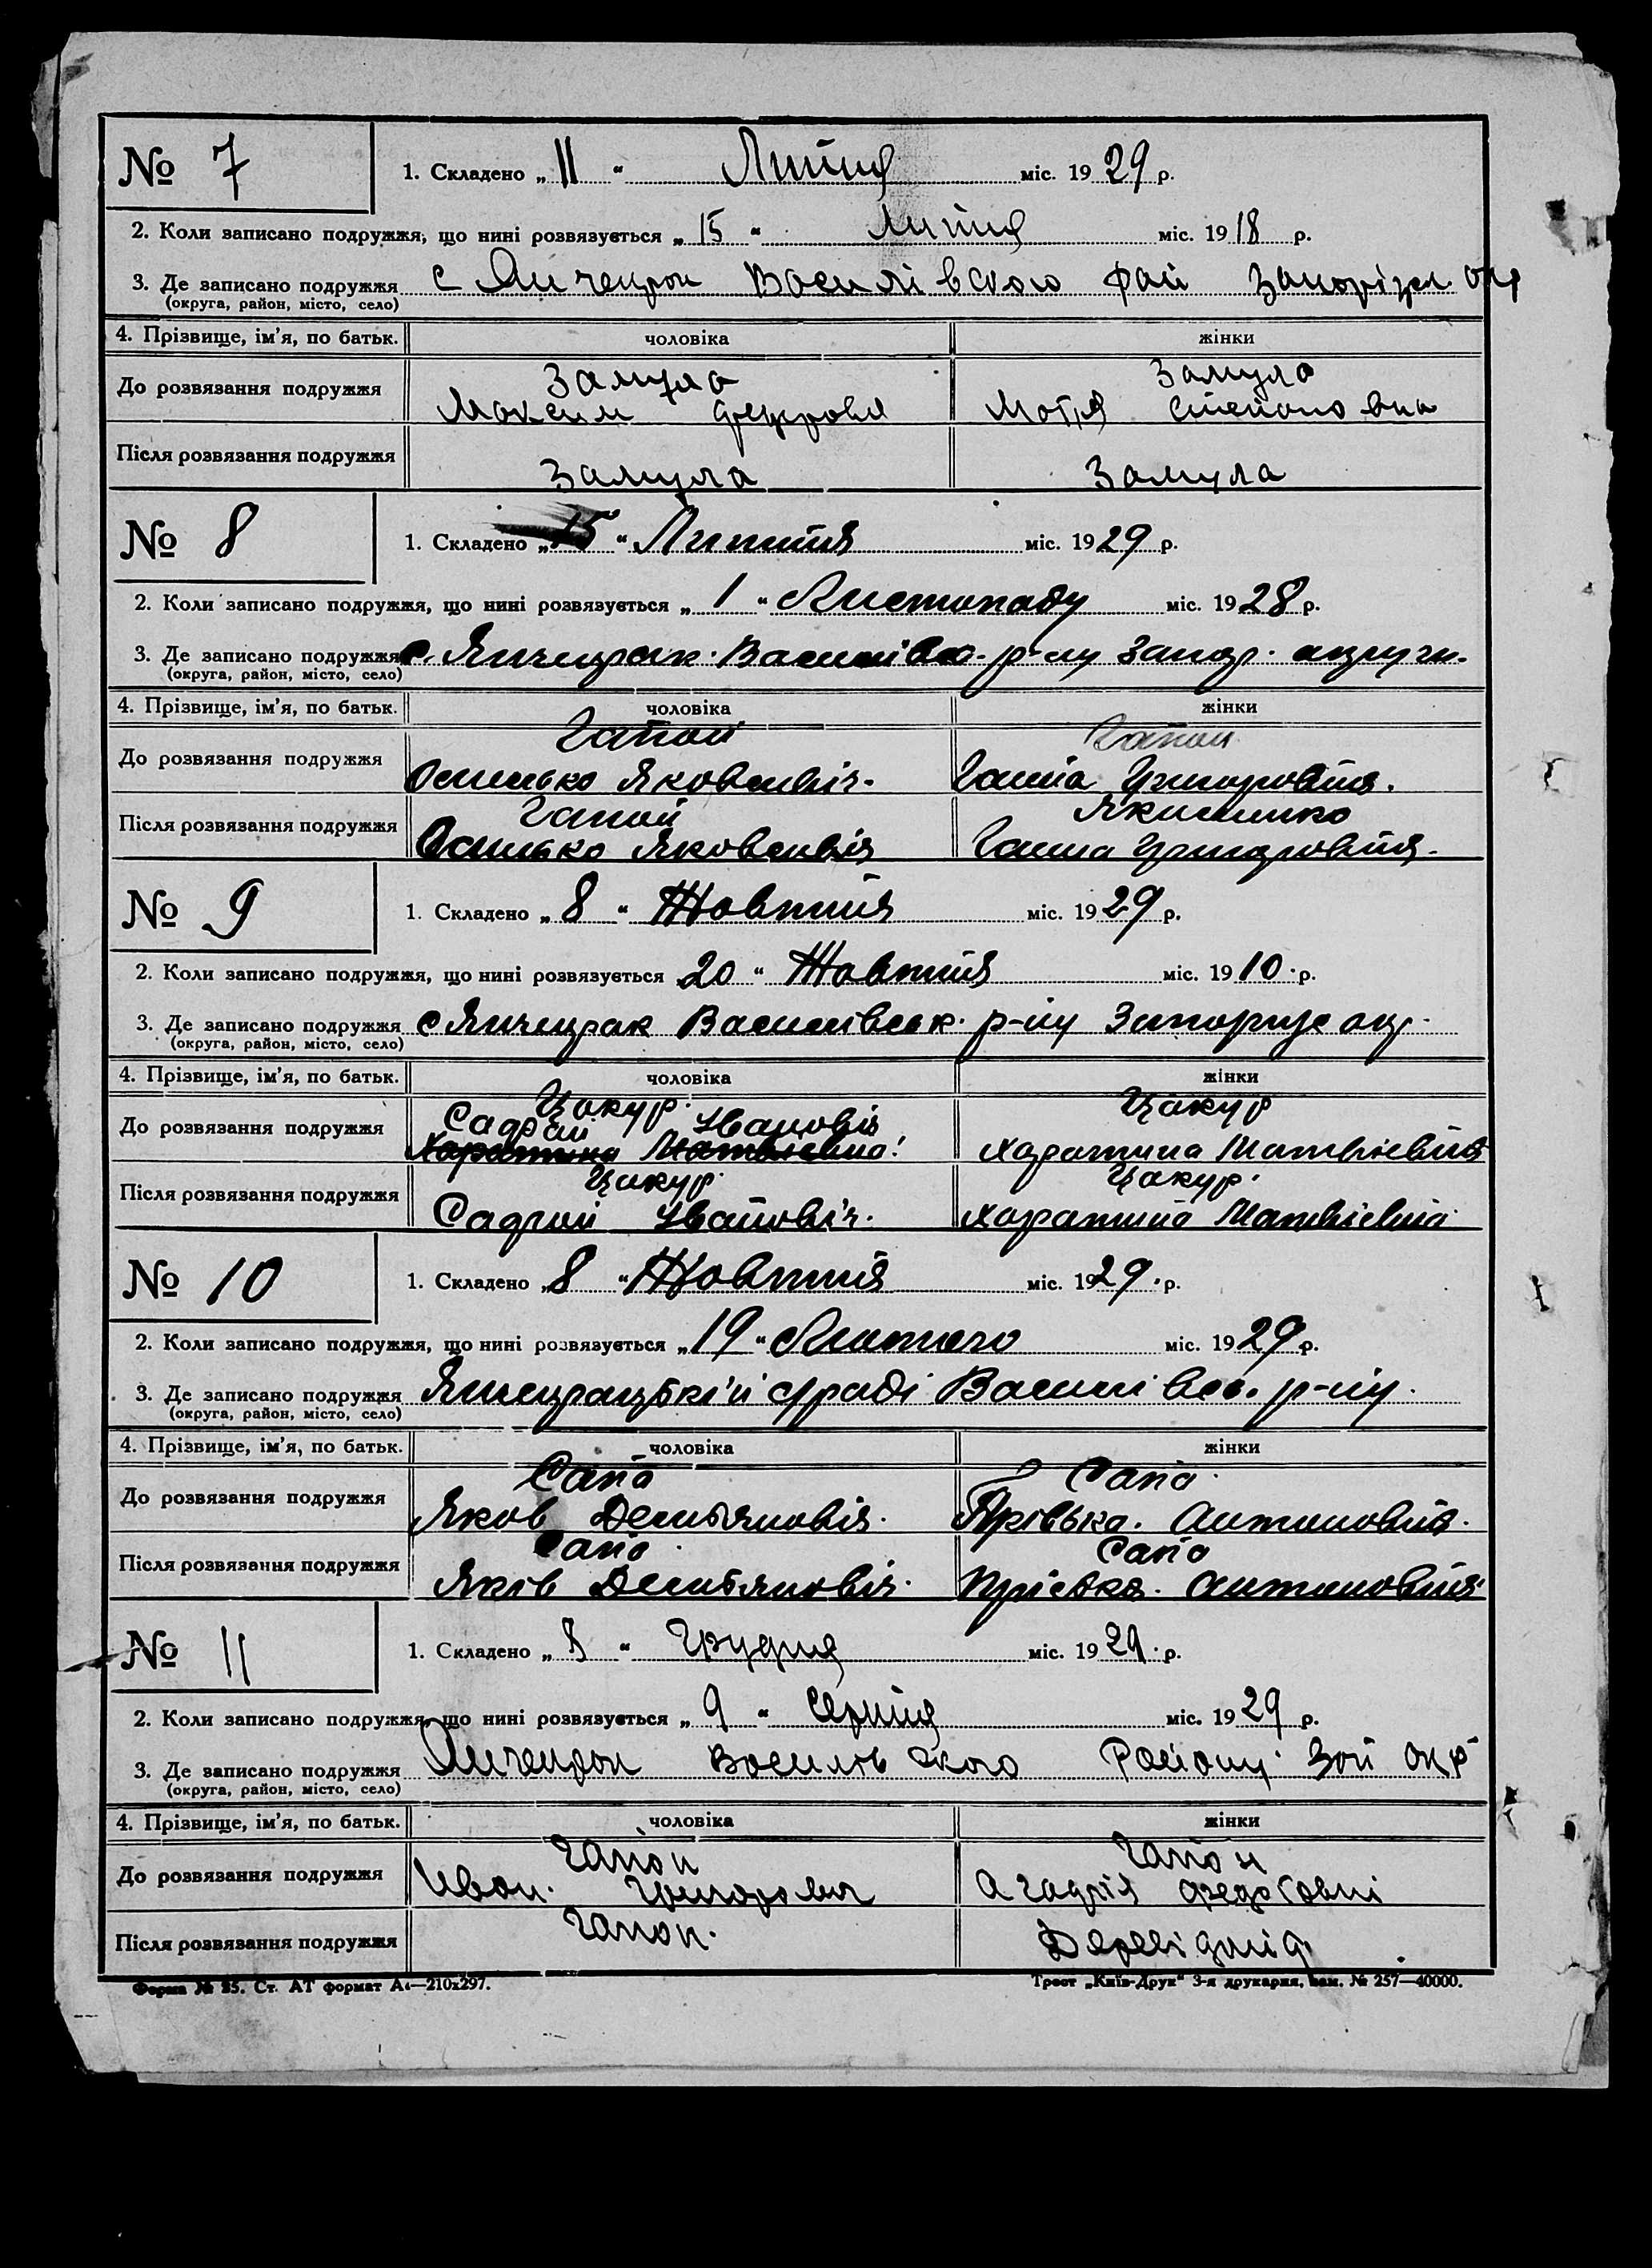 № 7
1. Складено „ 11 “ Липня міс. 19 29 р.
2. Коли записано подружжя, що нині розвязується „ 15 “ Липня міс. 19 18 р.
3. Де записано подружжя с Янчекрак Василівского Рай Запоріжж. окр
(округа, район, місто, село)
4. Прізвище, ім'я, по батьк. чоловіка жінки
Замула Замула
До розвязання подружжя
Максим Федоров Мотря Степановна
Після розвязання подружжя
Замула Замула
№ 8
1. Складено „ 15 “ Липття міс. 19 29 р.
2. Коли записано подружжя, що нині розвязується „ 1 “ Листопаду міс. 19 28 р.
3. Де записано подружжя с. Янчекрак. Василівс. р-ну Запор. округи.
(округа, район, місто, село)
4. Прізвище, ім'я, по батьк. чоловіка жінки
Гапон Гапон
До розвязання подружжя
Осипько Яковлевіч. Ганна Григоровня.
Гапон Якименко
Після розвязання подружжя
Осипько Яковлевіч Ганна Григоровня.
№ 9
1. Складено „ 8 “ Жовтня міс. 19 29 р.
2. Коли записано подружжя, що нині розвязується 20 “ Жовтня міс. 19 10 р.
3. Де записано подружжя с Янчекрак Василівськ. р-ну Запоріж окр.
(округа, район, місто, село)
4. Прізвище, ім'я, по батьк. чоловіка жінки
Цокур. Цокур
До розвязання подружжя Іванов
Харатина Матвієвна Харатина Матвієвна
Цокур. Цокур.
Після розвязання подружжя
Івановіч. Харатина Матвієвна
№ 10
1. Складено „ 8 “ Жовтня міс. 19 29 р.
2. Коли записано подружжя, що нині розвязується „ 19 “ Лютого міс. 19 29 р.
3. Де записано подружжя Янчекрацькій с/раді Василівс. р-ну.
(округа, район, місто, село)
4. Прізвище, ім'я, по батьк. чоловіка жінки
Сапа Сапа
До розвязання подружжя
Яков Демьяновіч. Прівька. Антоновна.
Сапа Сапа
Після розвязання подружжя
Яків Демьяновіч. Пріська. Антоновна
№ 11
1. Складено „ “ Грудня міс. 19 29 р.
2. Коли записано подружжя, що нині розвязується „ 9 “ Серпня міс. 19 29 р.
3. Де записано подружжя Янчекрак Василівского Району Зап окр
(округа, район, місто, село)
4. Прізвище, ім'я, по батьк. чоловіка жінки
Гапон Гапон
До розвязання подружжя
Иван. Григорович Федосовні
Після розвязання подружжя Гапон.
Форма № 25. Ст. АТ формат А₄—210х297. Трест „Київ-Друк“ 3-я друкарня, зам. № 257—40000.